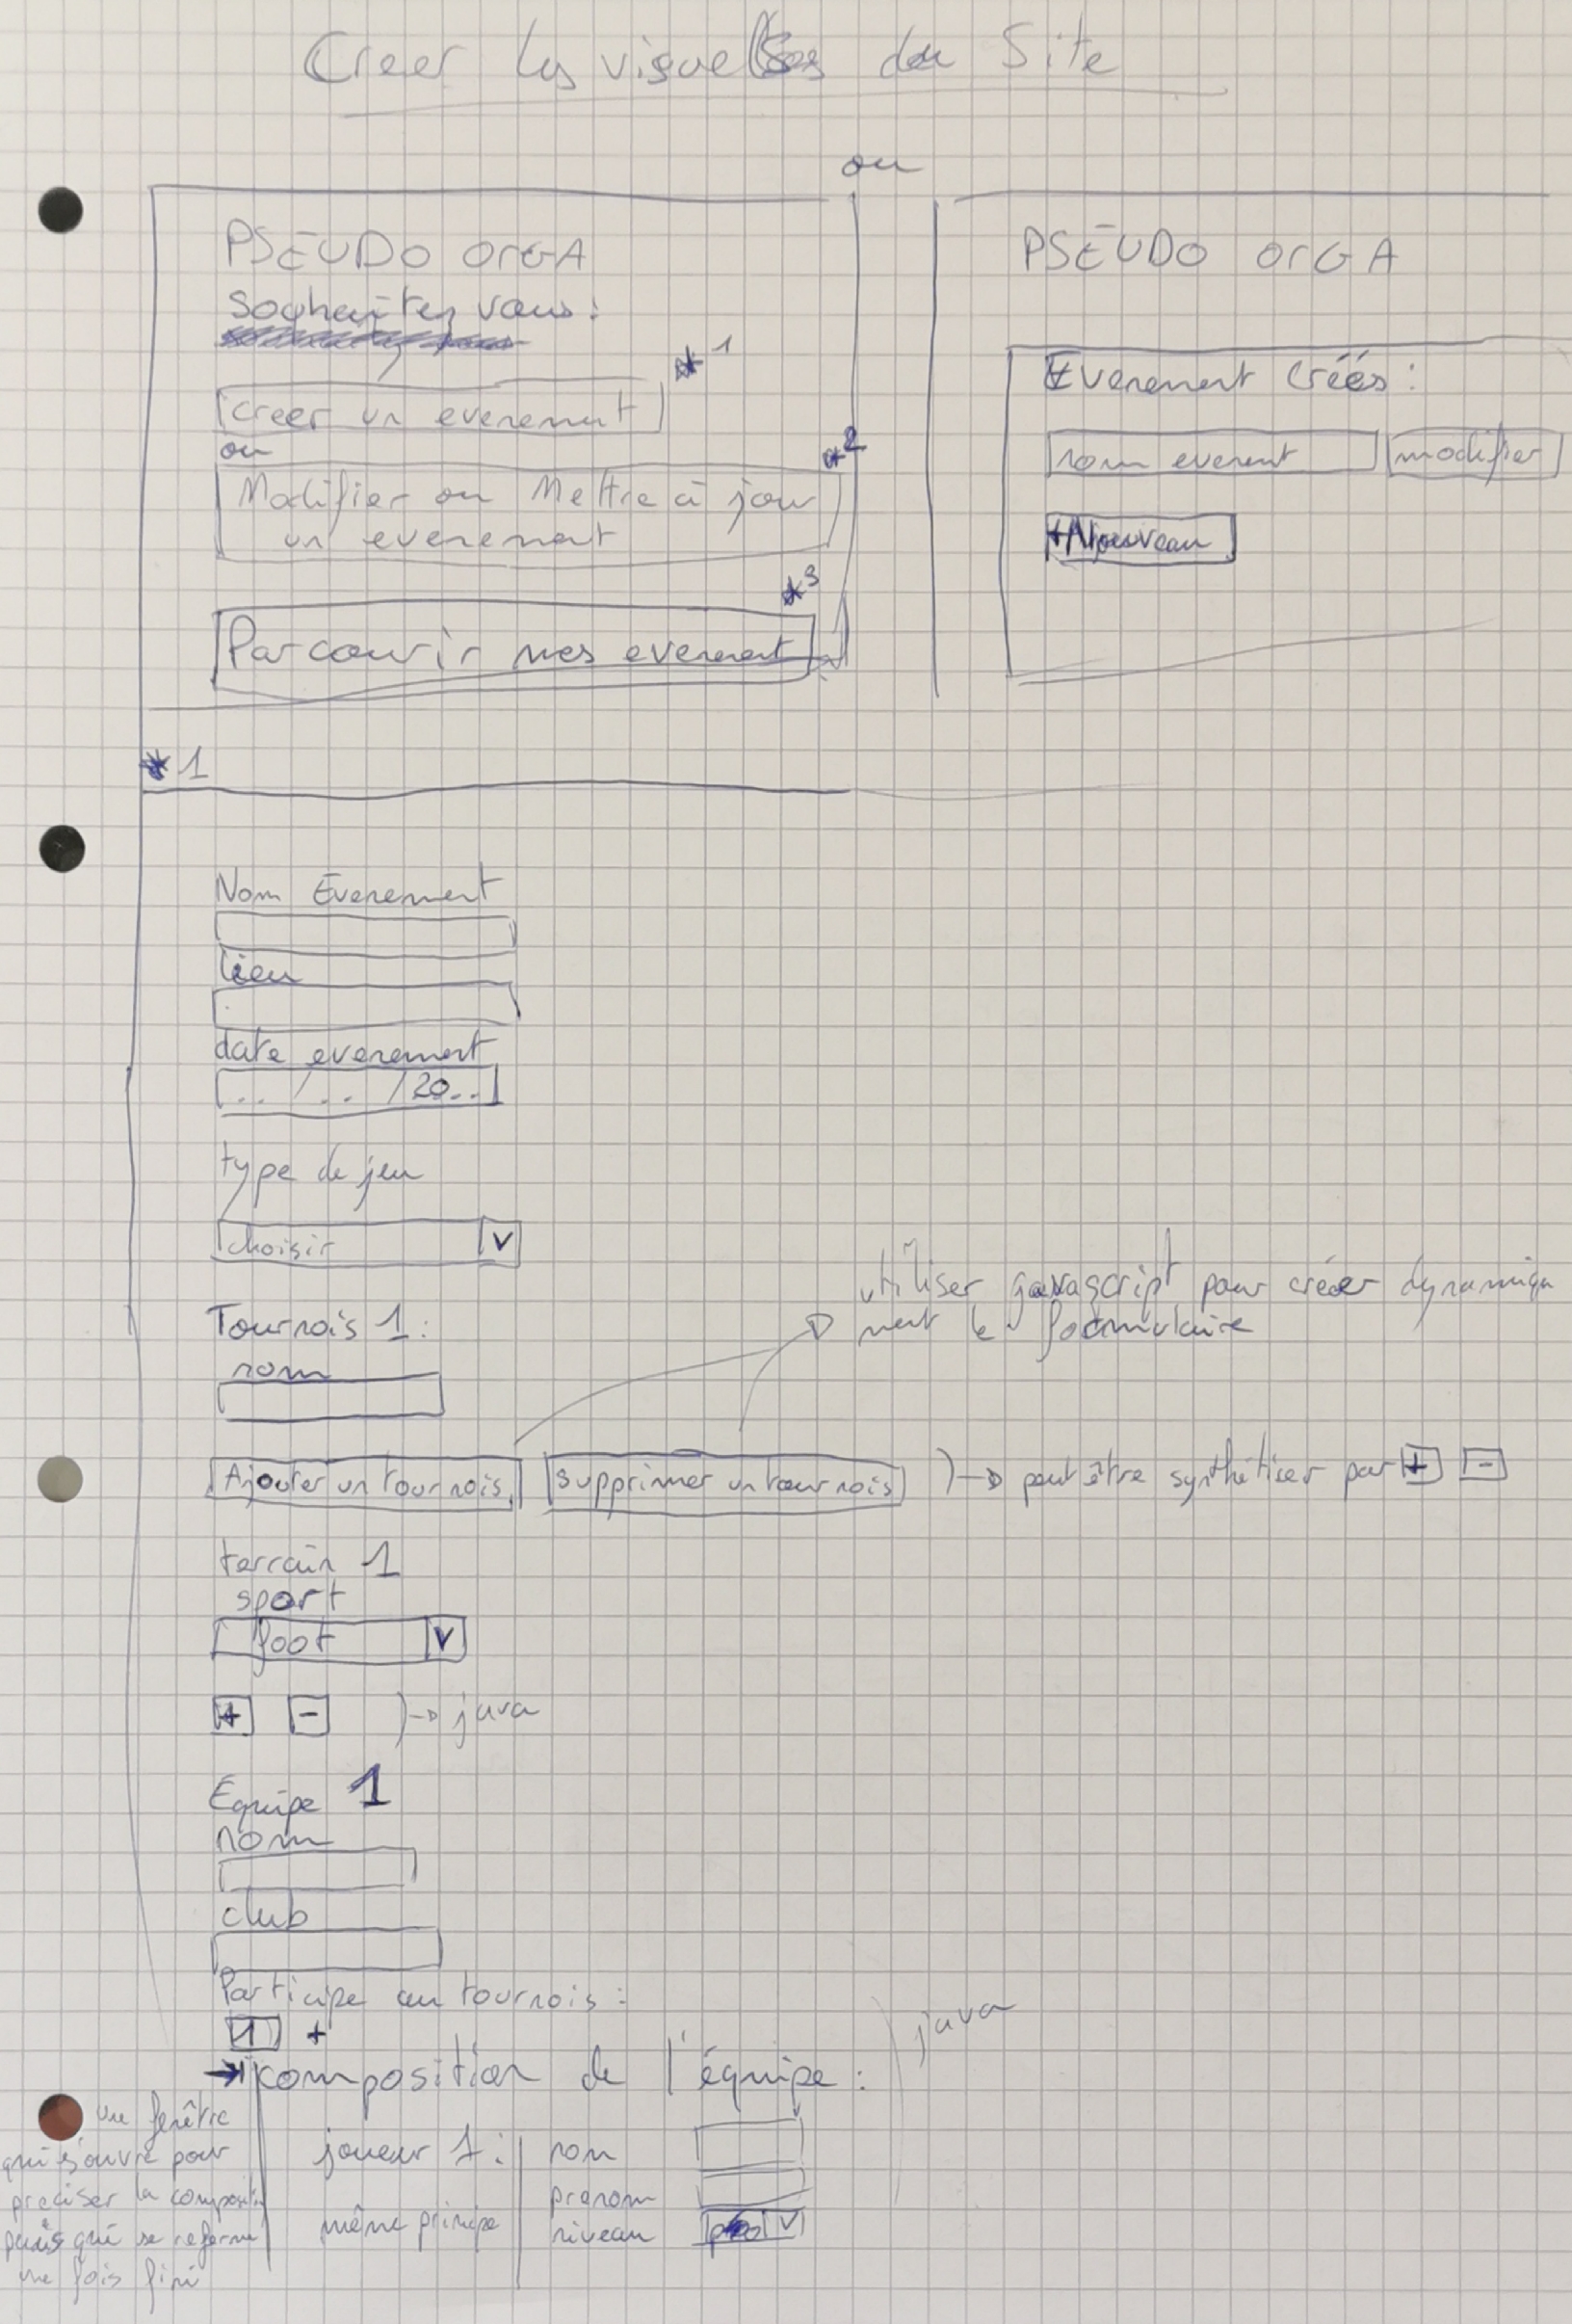 Creer les visuels du Site
ou
PSEUDO OrGA
Souhaitez vous :
*1
creer un evenement
ou
*2
Modifier ou Mettre à jour
un evenement
*3
Parcourir mes evenement
PSEUDO OrGA
Evenement Créés :
nom evenent
modifier
+Nouveau
*1
Nom Evenement
lieu
date evenement
.. / .. /20..
type de jeu
choisir V
utiliser javascript pour créer dynamiqu
ment le formulaire
Tournois 1 :
nom
Ajouter un tournois
supprimer un tournois
)→ peut être synthétiser par + -
terrain 1
sport
foot V
+ - )→ java
Equipe 1
nom
club
Participe au tournois :
1 +
java
→ composition de l'équipe :
une fenêtre
qui s'ouvre pour
préciser la composit
puis qui se referme
une fois fini
joueur 1 :
même principe
nom
prenom
niveau V